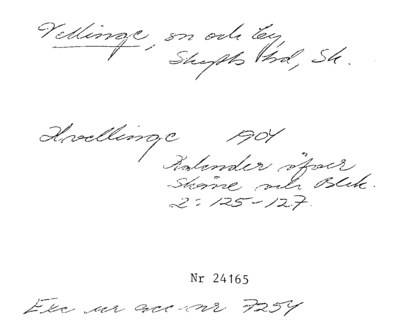 Vellinge, sn och by,
Skytts hd, Sk.
Hvellinge 1904
Kalender öfver
Skåne och Blek.
2: 125-127.
Nr 24165
Exc ur acc. nr 7254